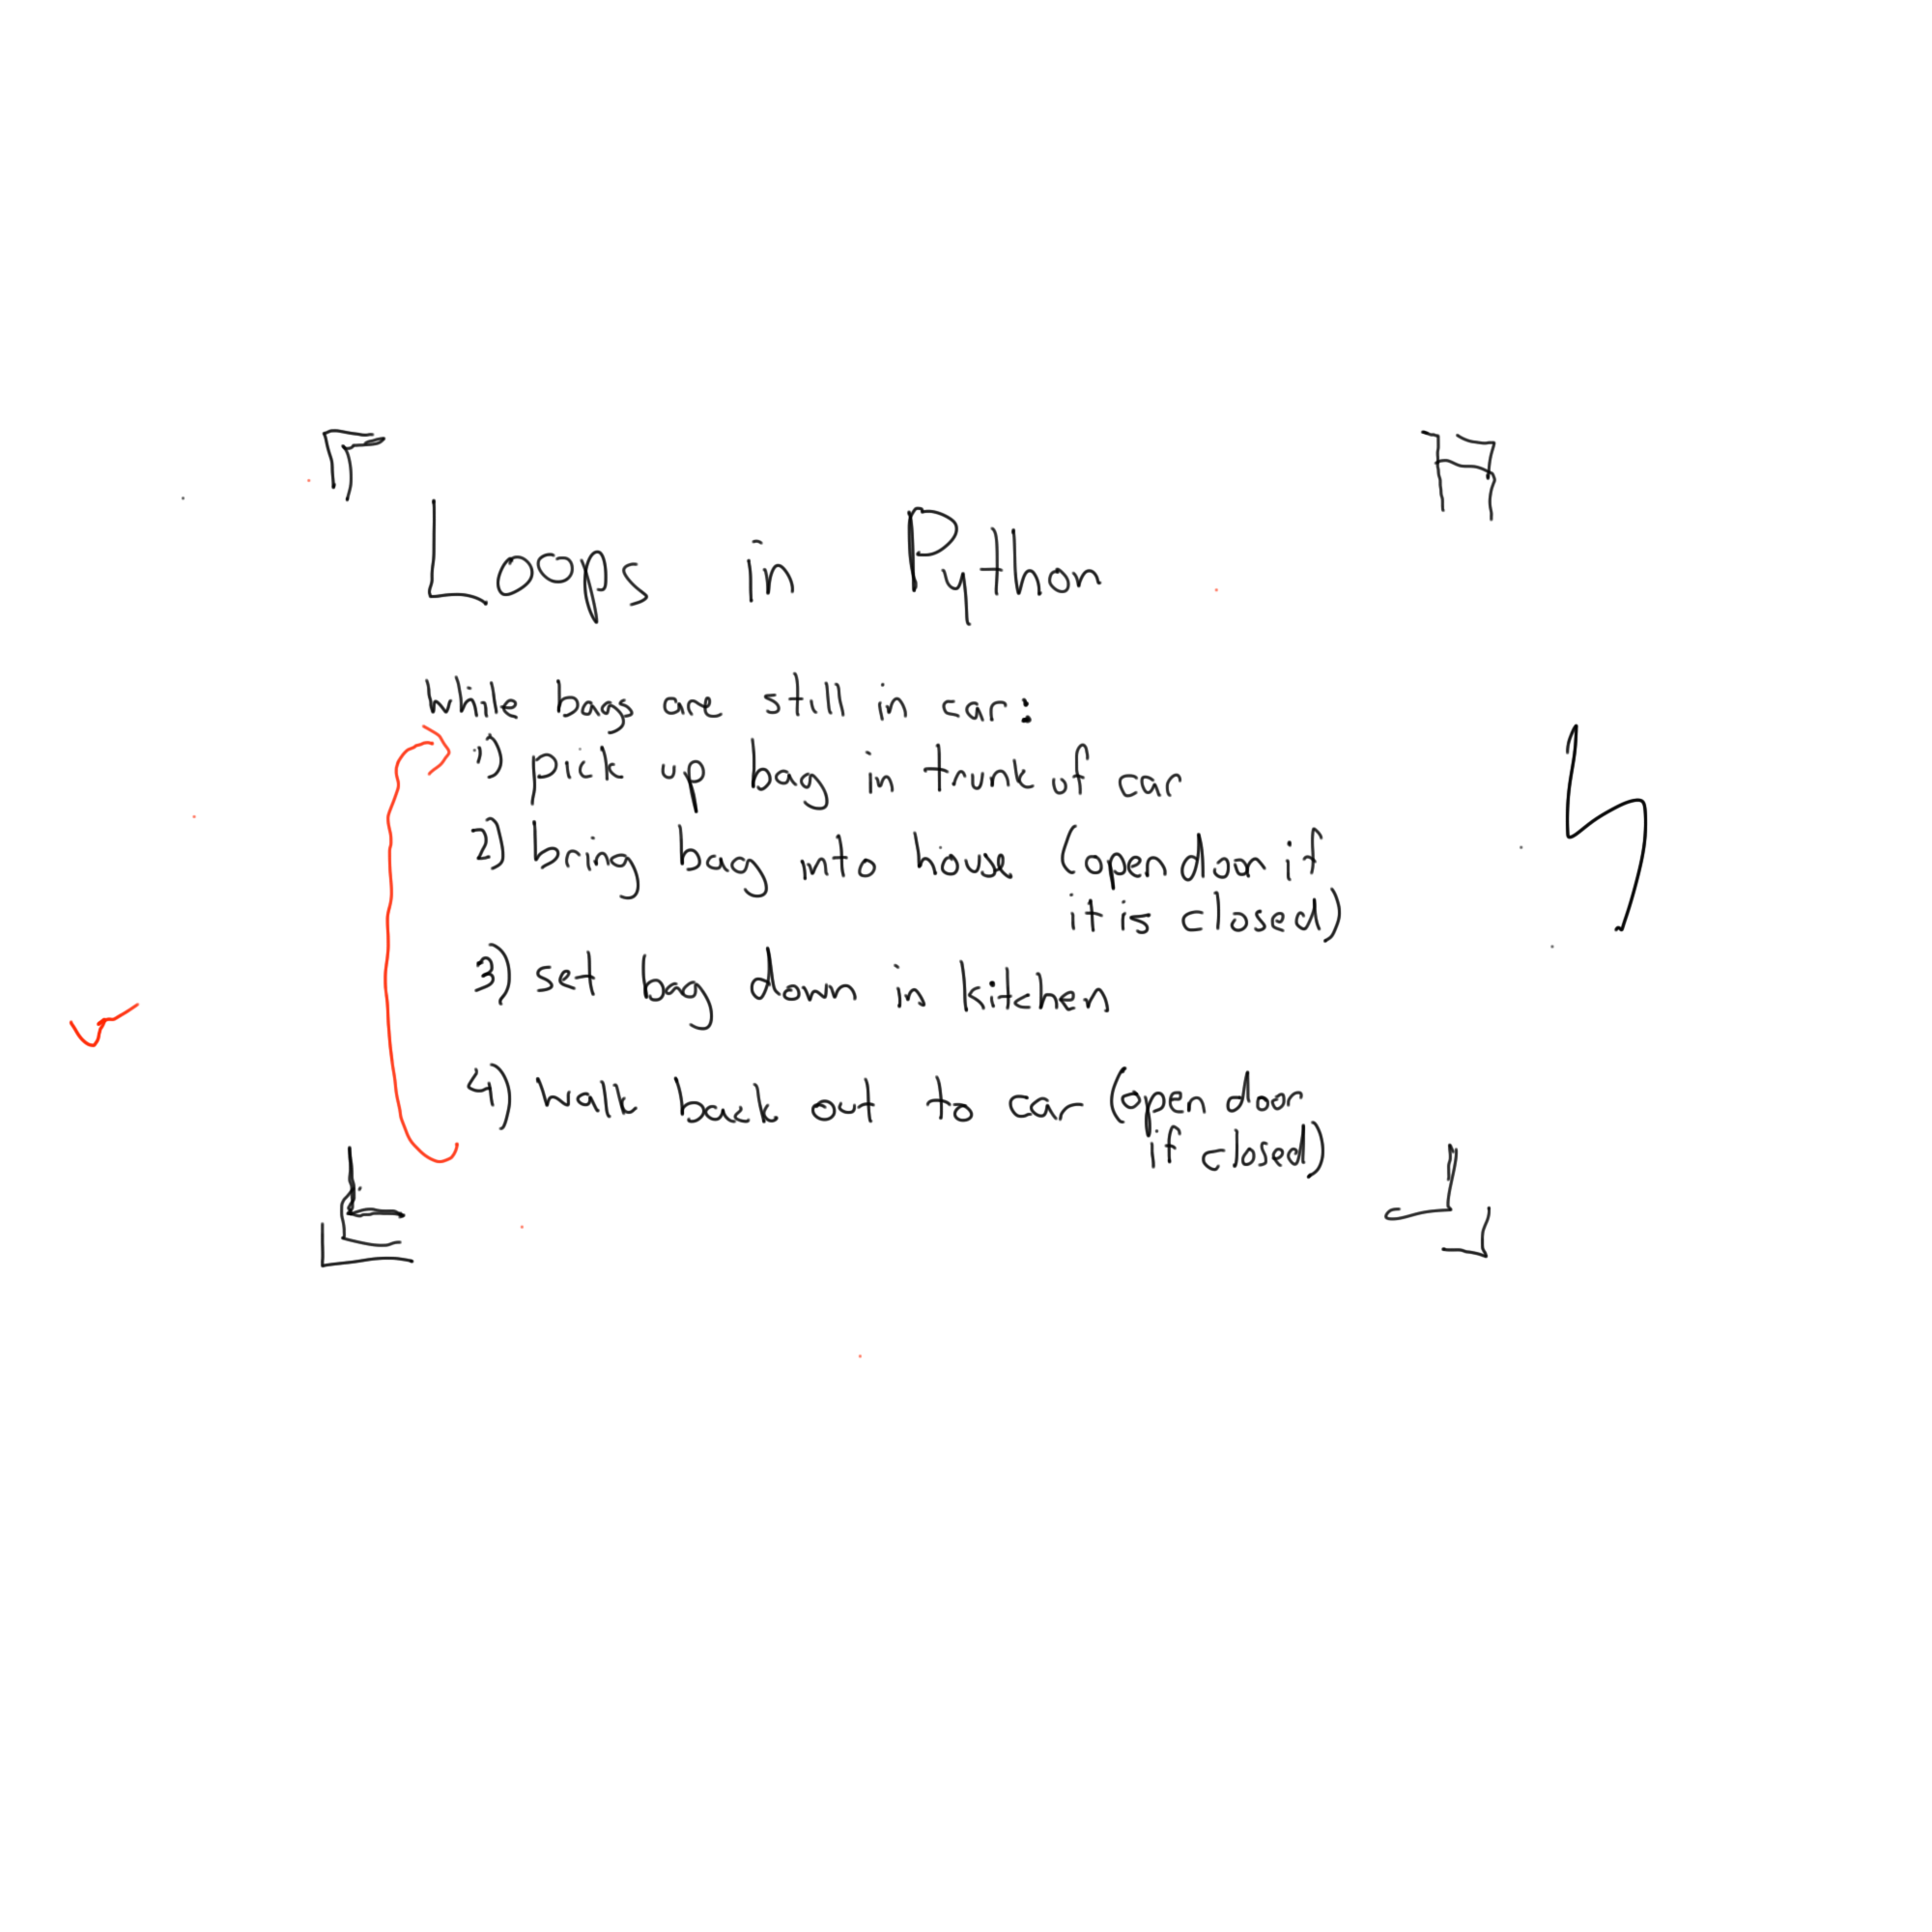 Loops in Python
While bags are still in car:
1) pick up bag in trunk of car
2) bring bag into house (open door if
it is closed)
3) set bag down in kitchen
4) walk back out to car (open door
if closed)